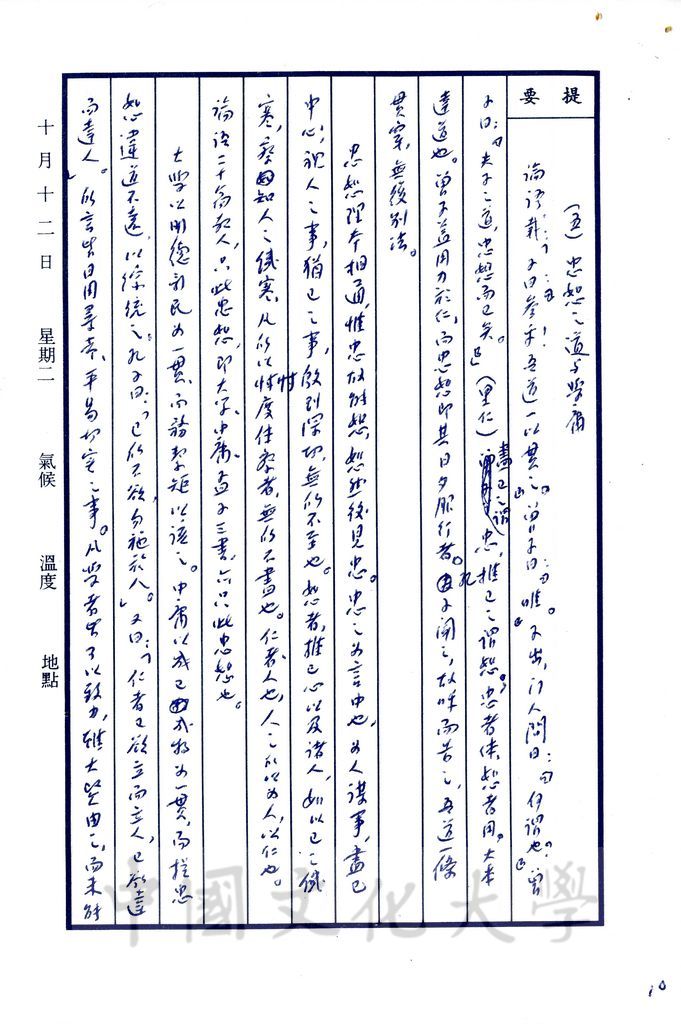 提要
(五)忠恕之道与学庸
論語載:「子曰:參乎!吾道一以貫之。」曾子曰:「唯。」子出,門人問曰:「何謂也?」曾
子曰:「夫子之道,忠恕而已矣。」(里仁)盡己之謂忠,推己之謂恕。忠者体,恕者用。大本
達道也。曾子蓋用力於仁,而忠恕即其日夕服行者。孔子聞之,故呼而告之,吾道一條
貫穿,無後別法。
忠恕理本相通,惟忠故能恕,恕然後見忠。忠之為言中也,为人謀事,盡己
中心;視人之事,猶己之事,做到深切,無所不至也。恕者,推己心以及諸人,如以己之饑
寒,察知人之饑寒,凡所以忖度体察者,無所不盡也。仁者人也,人之所以为人,以仁也。
論語二十篇教人,只此忠恕,即大学、中庸、孟子三書,亦只此忠恕也。
大学以明德新民为一貫,而務絜矩以該之。中庸以成己成物为一貫,而揔忠
恕違道不遠,以綜統之。孔子曰:「己所不欲,勿施於人。」又曰:「仁者己欲立而立人,己欲達
而達人。」所言皆日用尋常,平易切实之事。凡学者皆可以致力,雖大賢由之,而未能
十月十二日 星期二 氣候 溫度 地點
中國文化大學
10